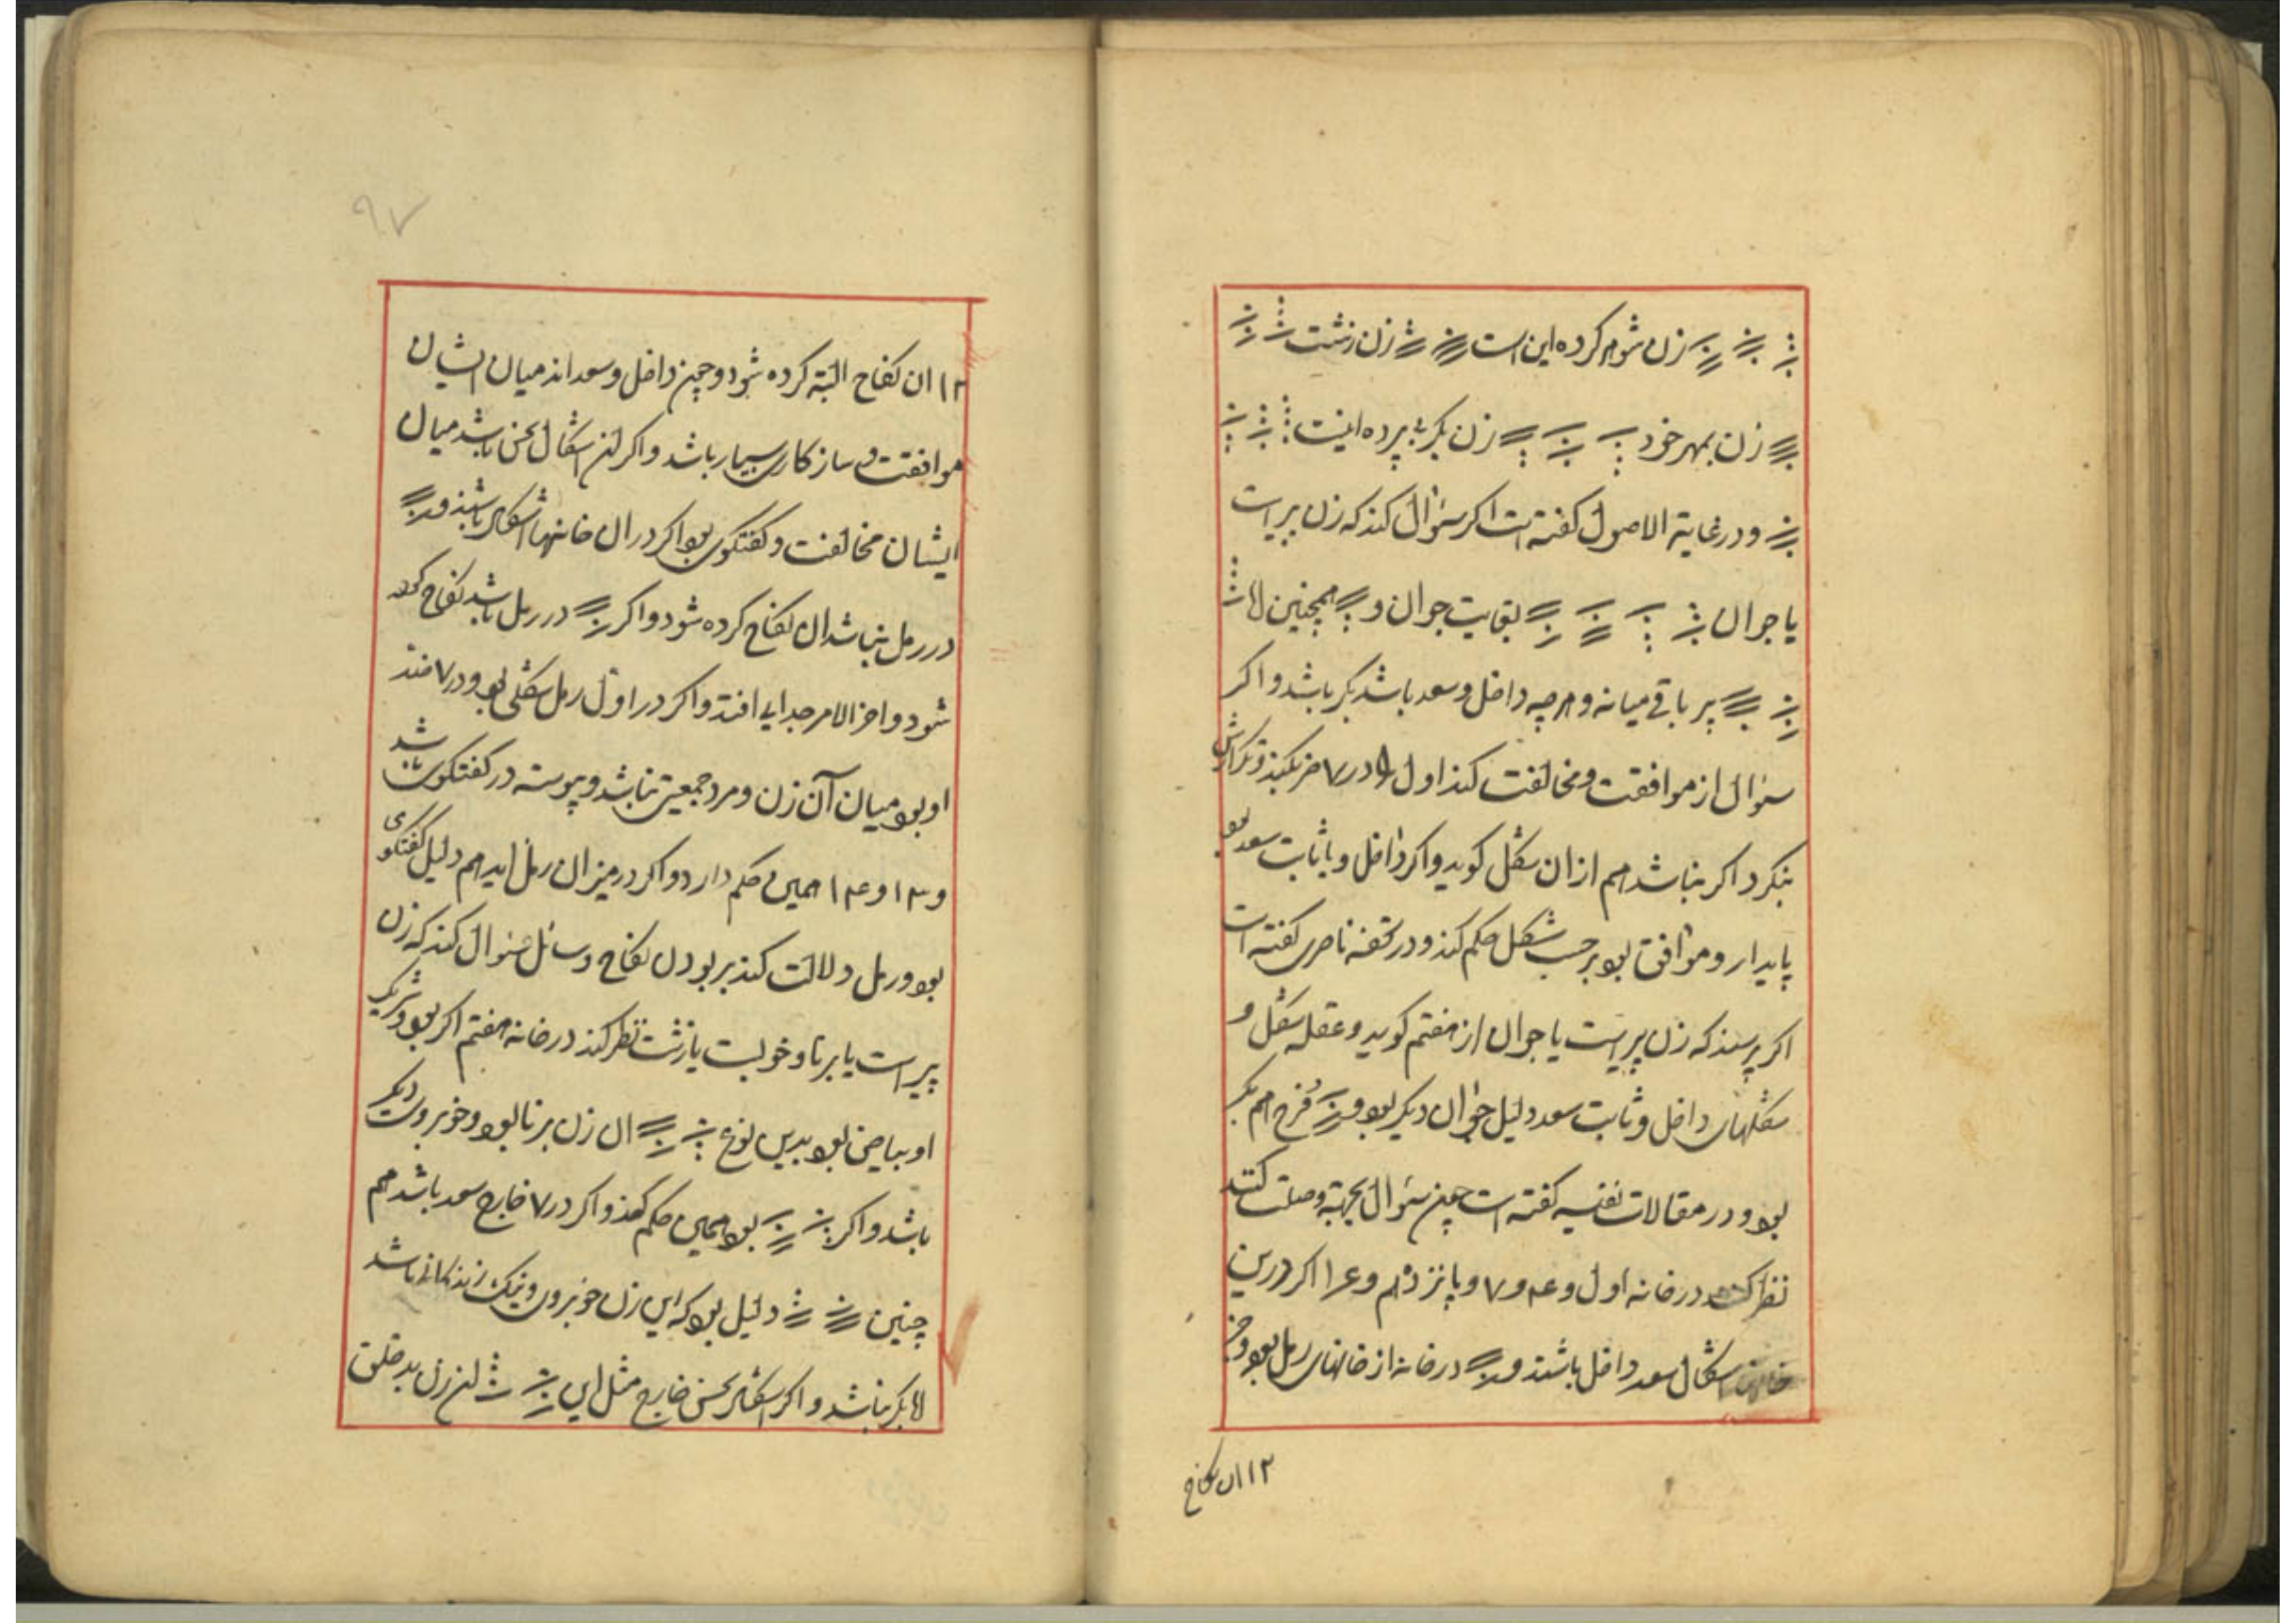 زن شوهر کرده این است زن زشت
زن بمهر خود زن بکر پرده اینست
و در غایة الاصول کفته است اکر سؤال کند که زن پیر است
یا جوان بغایت جوان و همچنین
پیر باقی میانه و هرچه داخل و سعد باشد بکر باشد و اکر
سؤال از موافقت و مخالفت کند اول در ۷
بنکرد اکر نباشد هم از ان شکل کوید و اکر داخل و یا ثابت سعد بود
پایدار و موافق بود بر حسب شکل حکم کند و در تحفه ناصری کفته است
اکر پرسند که زن پیر است یا جوان از هفتم کوید و عقله شکل و
شکلهای داخل و ثابت سعد دلیل جوان دیکر بود و فرخ هم بکر
بود و در مقالات نفیسه کفته است چون سؤال بجهة وصلت کنند
نظر کند در خانه اول و ۴ و ۷ و پانزدهم و ۱۴ اکر درین
خانها اشکال سعد داخل باشند و در خانه از خانهای رمل بود و در
۱۲ ان نکاح
۱۲ ان نکاح البته کرده شود و چون داخل و سعد اند میان ایشان
موافقت و سازکاری بسیار باشد و اکر این اشکال نحس باشد میان
ایشان مخالفت و کفتکوی بود اکر در ان خانها اشکال باشند و
در رمل نباشد ان نکاح کرده شود و اکر در رمل باشد نکاح کرده
شود و اخر الامر جدایی افتد و اکر در اول رمل شکلی بود و در ۷ ضد
او بود میان آن زن و مرد جمعیت نباشد و پیوسته در کفتکوی باشد
و ۱۳ و ۱۴ همین حکم دارد و اکر در میزان رمل اید هم دلیل کفتکوی
بود و رمل دلالت کند بر بودن نکاح و سائل سؤال کند که زن
پیر است یا برنا و خوبست یا زشت نظر کند در خانه هفتم اکر بود و شریک
او بیاض بود بدین نوع ان زن برنا بود و خوبروی دیکر
باشد و اکر بود همین حکم کند و اکر در ۷ خارج سعد باشد هم
چنین دلیل بود که این زن خوبروی و نیک زندکانی باشد
لا بکر نباشد و اکر اشکال نحس خارج مثل این این زن بد خلق